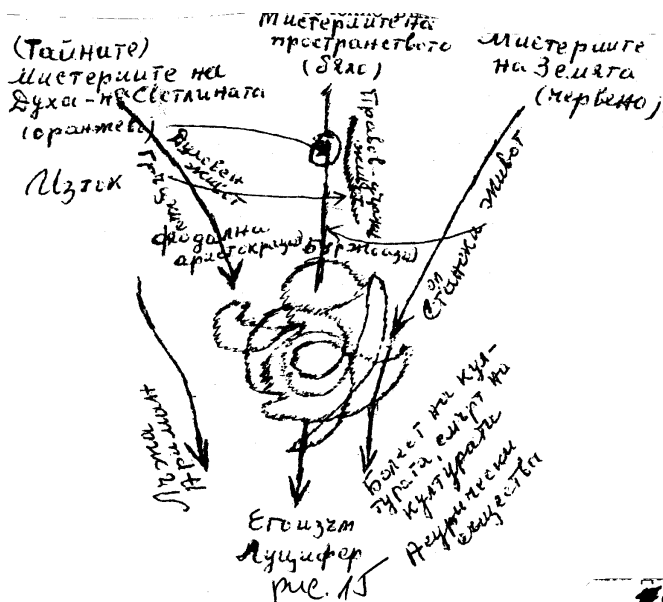 (Тайните)
Мистериите на
Духа - на Светлината
(оранжево)
Мистериите на
пространството
(бяло)
Мистериите
на Земята
(червено)
Изток
Духовен
живот
Гръцка
Правов-
живот
феодална
аристокрация
Буржоазия
Стопански живот
Лъжа
Ариман
Егоизъм
Луцифер
Болест на кул-
турата, смърт на
културата
Асурически
същества
рис. 15